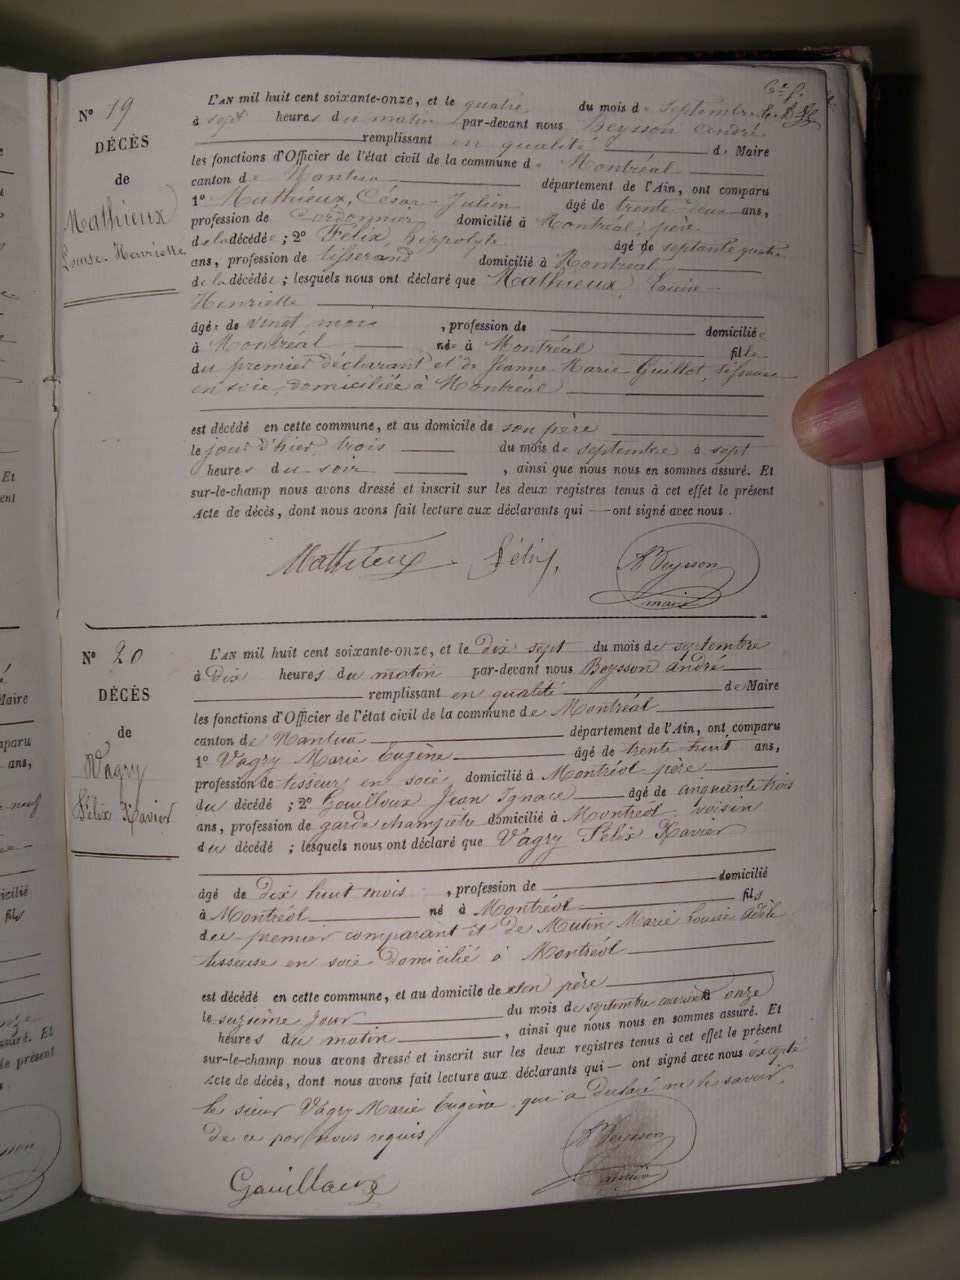 N° 19
DÉCÈS
de
Mathieux
Louise-Henriette
L'AN mil huit cent soixante-onze, et le quatre du mois de septembre
à sept heures du matin par-devant nous Beysson André
remplissant en qualité de Maire
les fonctions d'Officier de l'état civil de la commune de Montréal
canton de Nantua département de l'Ain, ont comparu
1° Mathieux, César-Julien âgé de trente-deux ans,
profession de Cordonnier domicilié à Montréal, père
de la décédée ; 2° Félix, hippolyte âgé de septante quatre
ans, profession de tisserand domicilié à Montréal
de la décédée ; lesquels nous ont déclaré que Mathieux, Louise-
Henriette
âgée de vingt mois , profession de domiciliée
à Montréal née à Montréal fille
du premier déclarant et de Jeanne-Marie Guillot, tisseuse
en soie, domiciliée à Montréal
est décédé en cette commune, et au domicile de son père
le jour d'hier, trois du mois de septembre à sept
heures du soir , ainsi que nous nous en sommes assuré. Et
sur-le-champ nous avons dressé et inscrit sur les deux registres tenus à cet effet le présent
Acte de décès, dont nous avons fait lecture aux déclarants qui ont signé avec nous.
Mathieux Félix, A Beysson
maire
N° 20
DÉCÈS
de
Vagry
Félix Xavier
L'AN mil huit cent soixante-onze, et le dix sept du mois de septembre
à dix heures du matin par-devant nous Beysson andré
remplissant en qualité de Maire
les fonctions d'Officier de l'état civil de la commune de Montréal
canton de Nantua département de l'Ain, ont comparu
1° Vagry Marie Eugène âgé de trente huit ans,
profession de tisseur en soie domicilié à Montréal père
du décédé ; 2° Gouilloux Jean Ignace âgé de cinquante trois
ans, profession de garde champêtre domicilié à Montréal voisin
du décédé ; lesquels nous ont déclaré que Vagry Félix Xavier
âgé de dix huit mois , profession de domicilié
à Montréal né à Montréal fils
du premier comparant et de Mutin Marie Louise adèle
tisseuse en soie domicilié à Montréal
est décédé en cette commune, et au domicile de son père
le seizième jour du mois de septembre courant à onze
heures du matin , ainsi que nous nous en sommes assuré. Et
sur-le-champ nous avons dressé et inscrit sur les deux registres tenus à cet effet le présent
Acte de décès, dont nous avons fait lecture aux déclarants qui ont signé avec nous excepté
le sieur Vagry Marie Eugène qui a déclaré ne le savoir
de ce par nous requis
Gouilloux A Beysson
maire